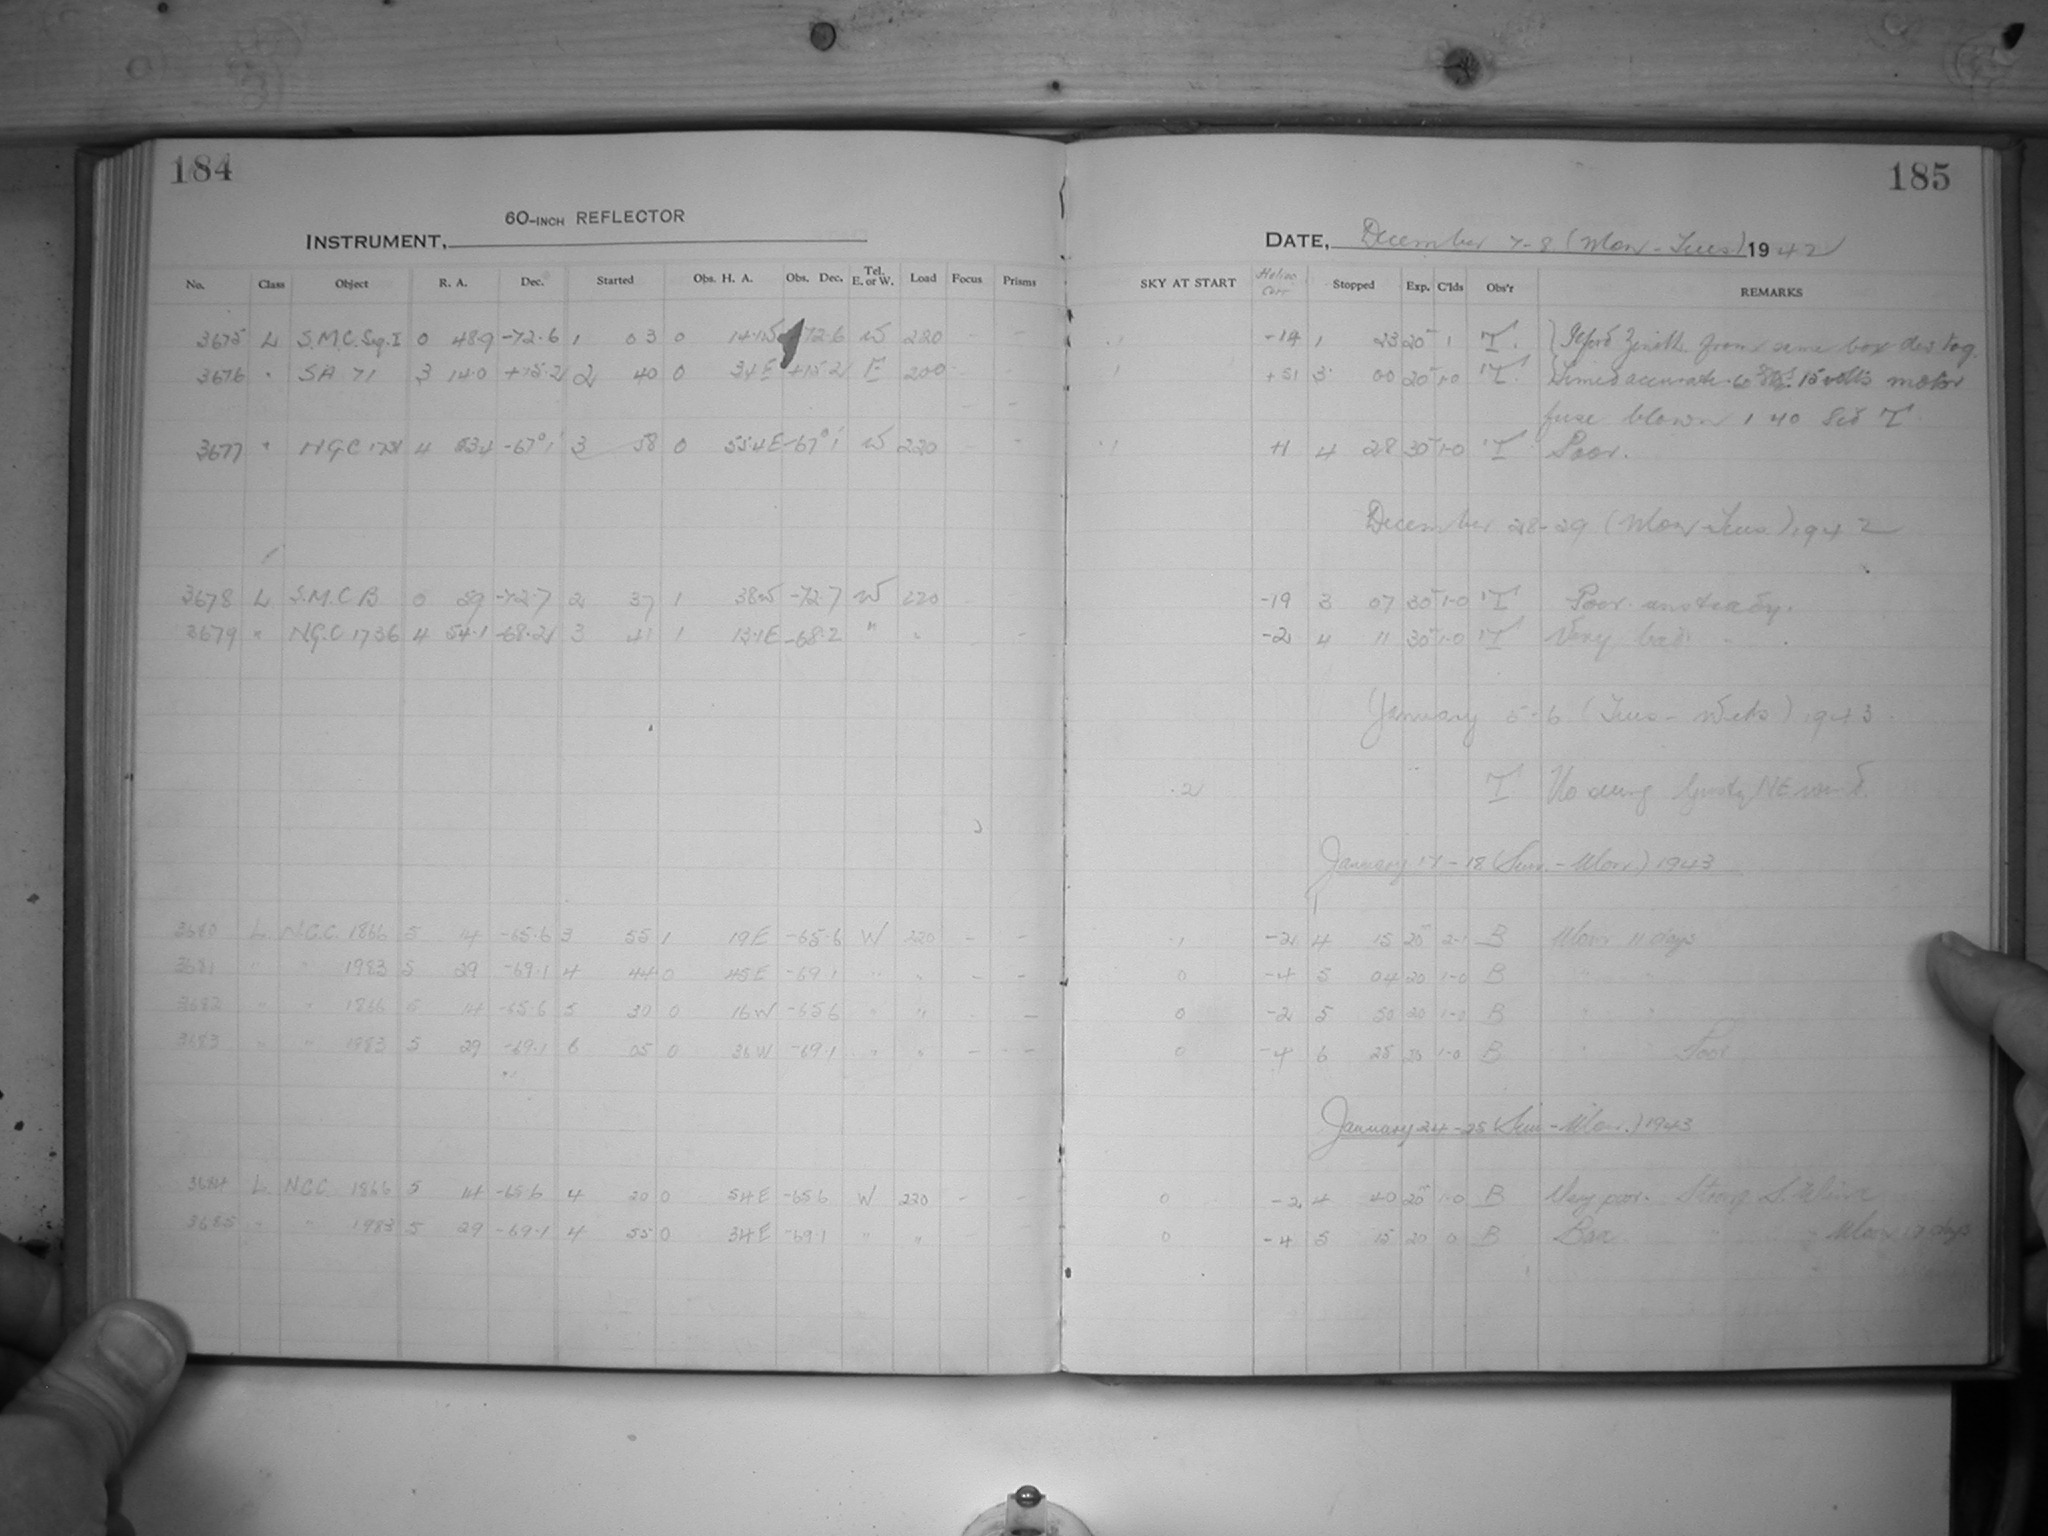 184
60-INCH REFLECTOR
INSTRUMENT,
No. Class Object R. A. Dec. Started Obs. H. A. Obs. Dec. Tel. E. or W. Load Focus Prisms
3675 L S.M.C. Seq. I 0 48.9 -72.6 1 03 0 14.1W -72.6 W 220 - -
3676 " SA 71 3 14.0 +15.2 2 40 0 34E +15.2 E 200 - -
3677 " NGC 4 53.4 -67° 1' 3 58 0 55.4E -67° 1' W 220 -
3678 L S.M.C B 0 59 -72.7 2 37 1 38W -72.7 W 220 -
3679 " NGC 1736 4 54.1 -68.2 3 41 1 13.1E -68.2 " " - -
3680 L N.G.C. 1866 5 14 -65.6 3 55 1 19E -65.6 W 220 - -
3681 " " 1983 5 29 -69.1 4 44 0 45E -69.1 " " - -
3682 " " 1866 5 14 -65.6 5 30 0 16W -65.6 " " - -
3683 " " 1983 5 29 -69.1 6 05 0 36W -69.1 " " - -
3684 L N.G.C. 1866 5 14 -65.6 4 20 0 54E -65.6 W 220 - -
3685 " " 1983 5 29 -69.1 4 55 0 34E -69.1 " " -
185
DATE, December 7-8 (Mon - Tues) 1942
SKY AT START Helioc Corr Stopped Exp. C'lds Obs'r REMARKS
.1 -14 1 23 20 1 T. Ilford Zenith from same box
.1 +51 3 00 20 1-0 T. Timed accurate 15 volts motor
fuse blown 1 40 Sid T.
.1 +1 4 28 30 1-0 T Poor.
December 28-29 (Mon - Tues.) 1942
-19 3 07 30 1-0 T Poor. unsteady.
-2 4 11 30 1-0 T Very bad. " .
January 5-6 (Tues - Weds) 1943.
.2 T No seeing Gusty NE wind.
January 17-18 (Sun. - Mon.) 1943
.1 -2 4 15 20 2-1 B Moon 11 days
0 -4 5 04 20 1-0 B " "
0 -2 5 50 20 1-0 B " "
0 -4 6 25 20 1-0 B " Poor
January 24-25 (Sun - Mon.) 1943
0 -2 4 40 20 1-0 B Very poor. Strong S. Wind
0 -4 5 15 20 0 B Bad " " Moon days